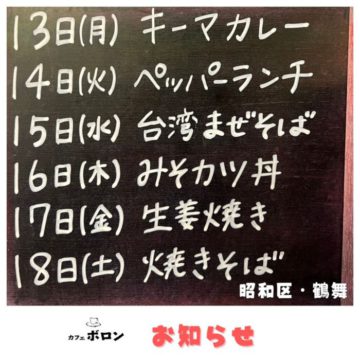 13日(月) キーマカレー
14日(火) ペッパーランチ
15日(水) 台湾まぜそば
16日(木) みそカツ丼
17日(金) 生姜焼き
18日(土) 焼きそば
昭和区・鶴舞
カフェ ボロン
お知らせ